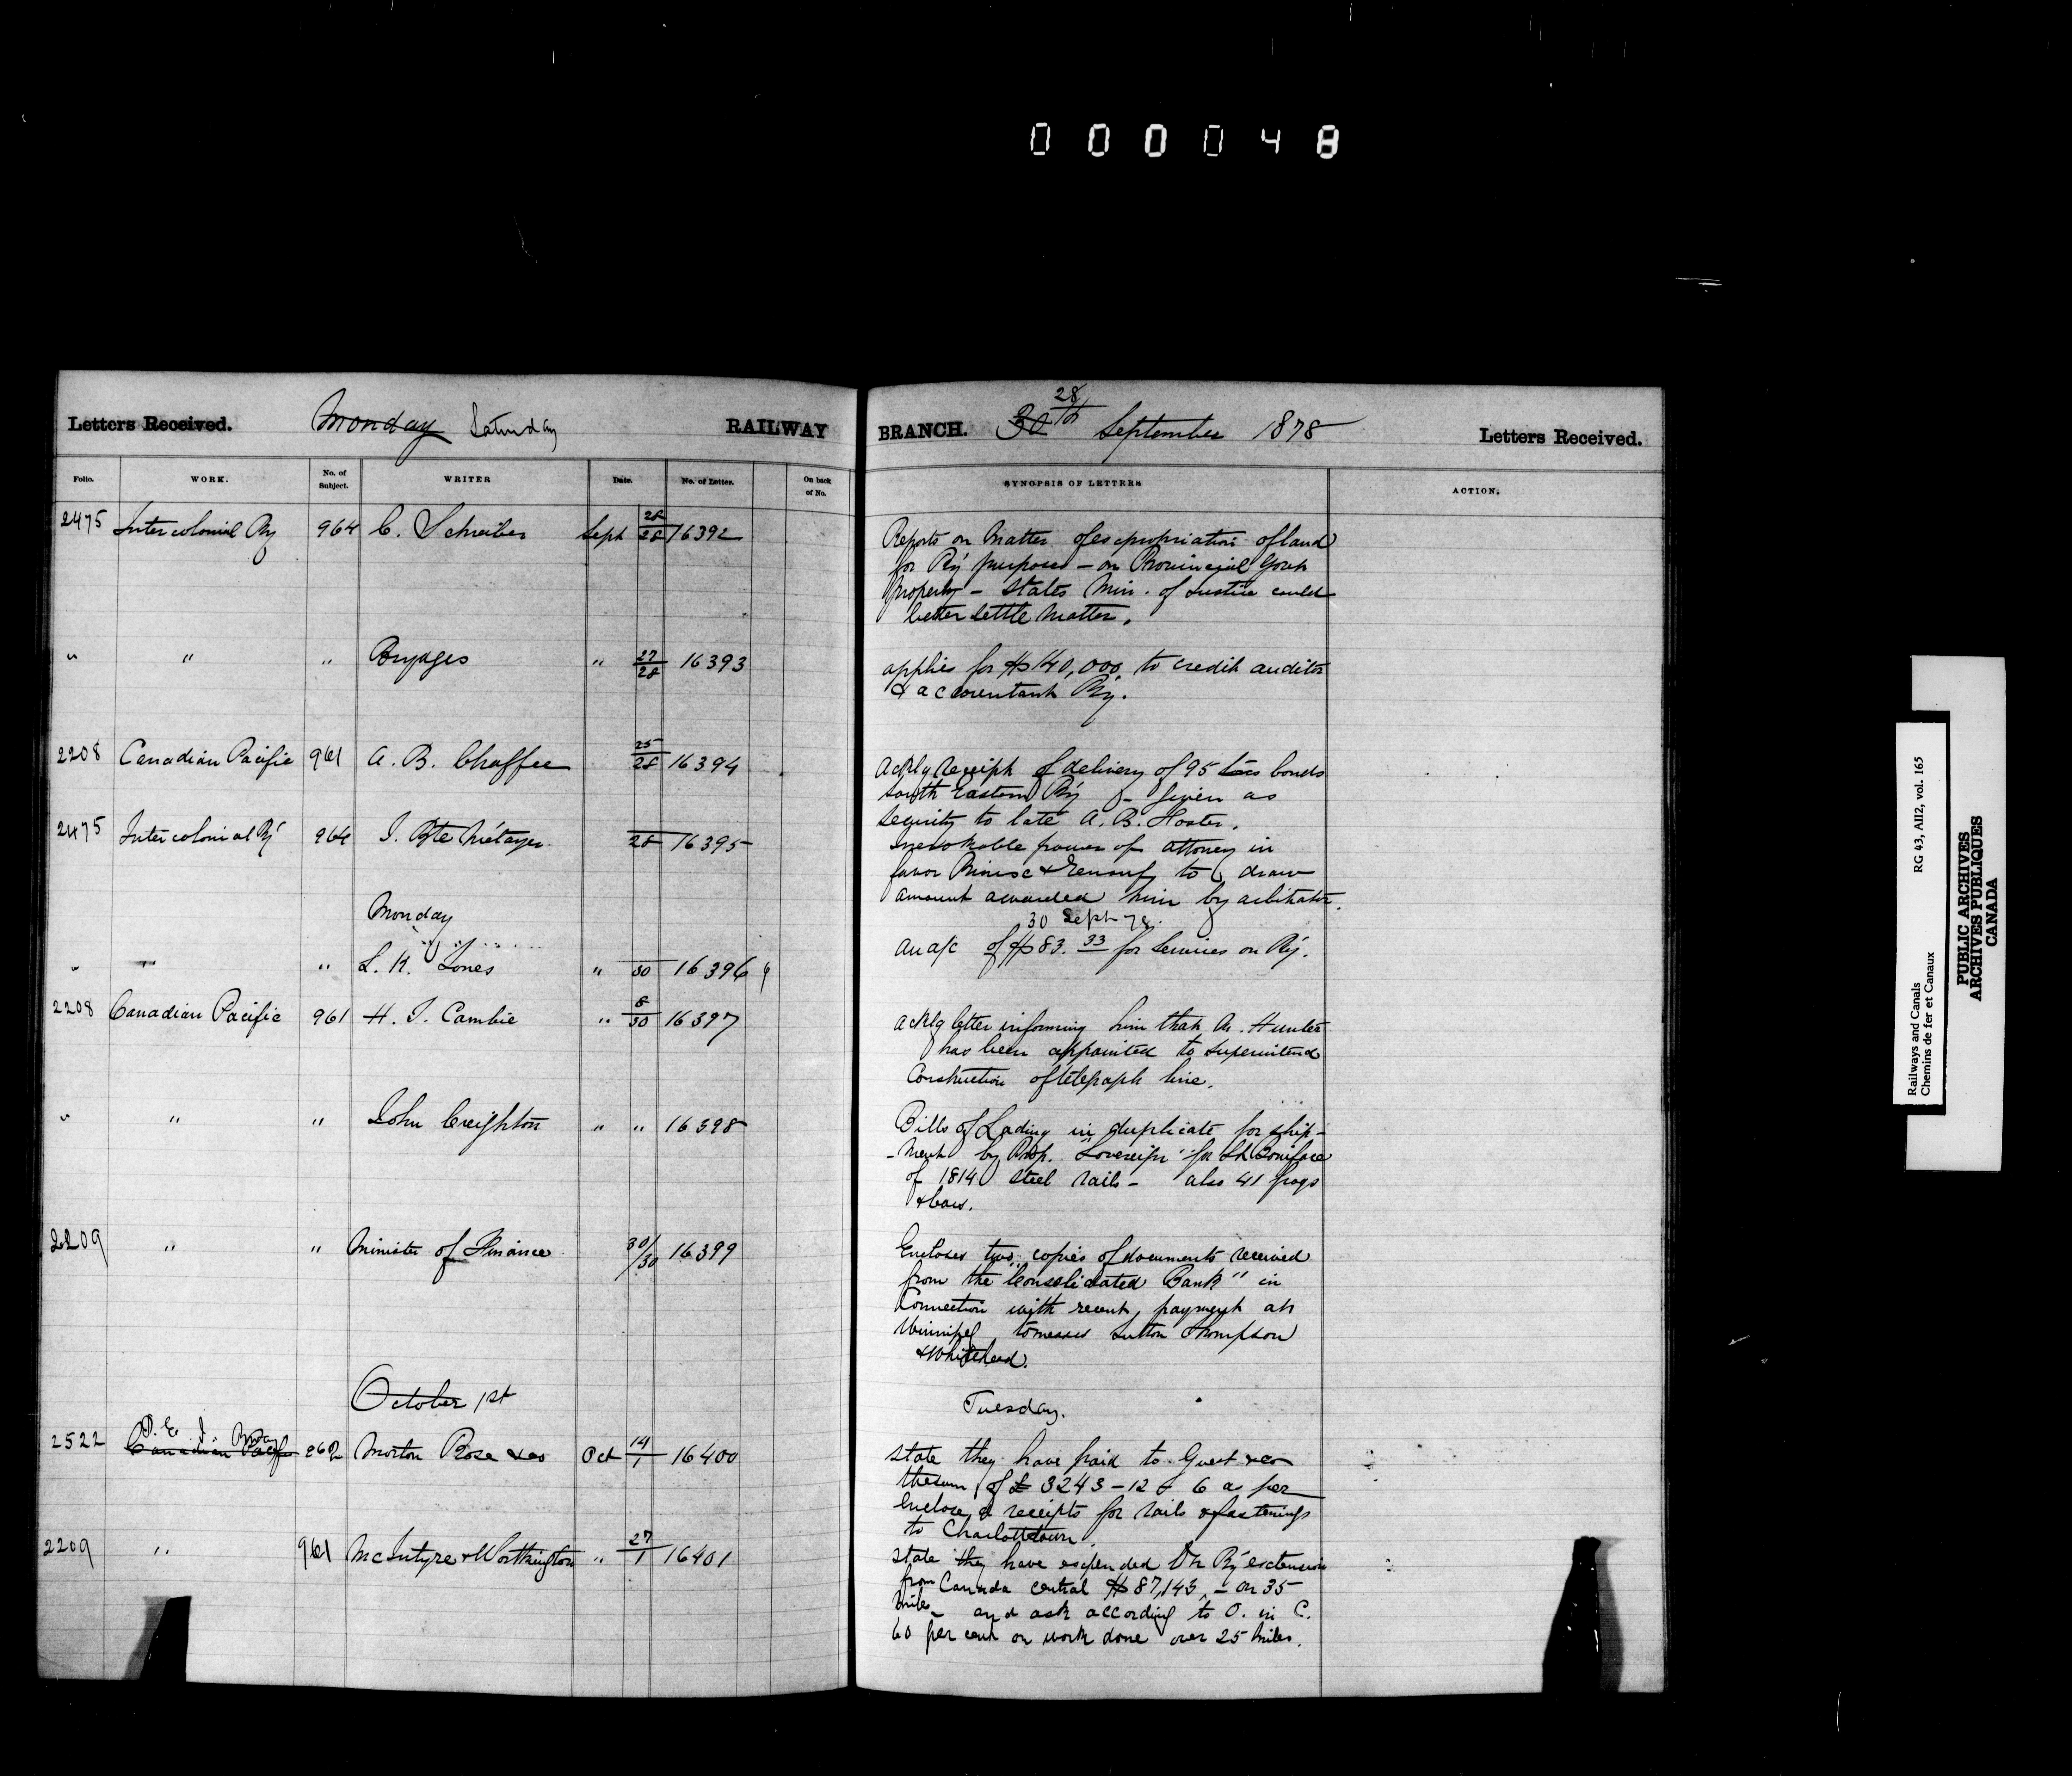 000048
Letters Received. Monday Saturday RAILWAY
BRANCH. 30th 28 September 1878 Letters Received.
Folio. WORK. No. of Subject. WRITER Date. No. of Letter. On back of No.
SYNOPSIS OF LETTERS ACTION.
2475 Intercolonial Ry 964 C. Schreiber Sept 28/28 16392
Reports on matter of expropriation of land
for Ry purposes – on Provincial Govt
property – states Min. of Justice could
better settle matter.
" " " Brydges " 27/28 16393
applies for $140,000 to credit auditor
& accountant Ry.
2208 Canadian Pacific 961 A. B. Chaffee 25/28 16394
Ackg receipt of delivery of 95 bonds
South Eastern Ry – given as
security to late A. B. Foster.
2475 Intercolonial Ry 964 J. Bte Métayer 28 16395
Irrevokable power of attorney in
favor to draw
amount awarded him by arbitrator.
Monday
30 Sept 78.
" " L. K. Jones " 30 16396
an a/c of $83.33 for services on Ry.
2208 Canadian Pacific 961 H. J. Cambie " 8/30 16397
ackg letter informing him that Mr. Hunter
has been appointed to superintend
Construction of telegraph line.
" " " John Creighton " " 16398
Bills of Lading in duplicate for ship-
-ment by Prop. "Sovereign" for St Boniface
of 1814 steel rails – also 41 frogs
2209 " " Minister of Finance 30/30 16399
Encloses two copies of documents received
from the "Consolidated Bank" in
Connection with recent payment at
Winnipeg to Messrs Sutton Thompson
& Whitehead.
October 1st
Tuesday.
2522 P. E. I. Canadian Pacific 962 Morton Rose & Co Oct 14/1 16400
state they have paid to Guest & Co
the sum of £3243-12-6 as per
enclosed receipts for rails & fastenings
to Charlottetown.
2209 " 961 McIntyre & Worthington " 27/1 16401
state they have expended on Ry extension
from Canada Central $87,143 – on 35
miles – and ask according to O. in C.
60 per cent on work done over 25 miles.
Railways and Canals RG 43, AII2, vol. 165
Chemins de fer et Canaux
PUBLIC ARCHIVES
ARCHIVES PUBLIQUES
CANADA